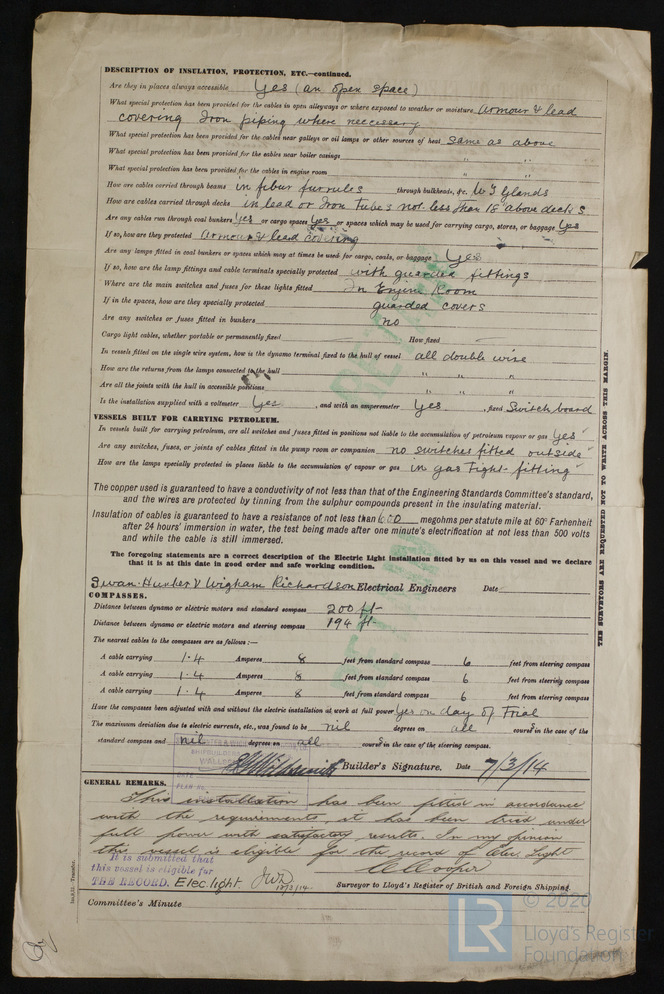 DESCRIPTION OF INSULATION, PROTECTION, ETC.—continued.
Are they in places always accessible Yes (an open space)
What special protection has been provided for the cables in open alleyways or where exposed to weather or moisture Armour & lead
covering Iron piping where necessary
What special protection has been provided for the cables near galleys or oil lamps or other sources of heat same as above
What special protection has been provided for the cables near boiler casings " "
What special protection has been provided for the cables in engine room " "
How are cables carried through beams in fiber furrules through bulkheads, &c. W T Glands
How are cables carried through decks in lead or Iron tubes not less than 18" above decks
Are any cables run through coal bunkers Yes or cargo spaces Yes or spaces which may be used for carrying cargo, stores, or baggage Yes
If so, how are they protected Armour & lead covering
Are any lamps fitted in coal bunkers or spaces which may at times be used for cargo, coals, or baggage Yes
If so, how are the lamp fittings and cable terminals specially protected with guarded fittings
Where are the main switches and fuses for these lights fitted In Engine Room
If in the spaces, how are they specially protected guarded covers
Are any switches or fuses fitted in bunkers no
Cargo light cables, whether portable or permanently fixed — How fixed —
In vessels fitted on the single wire system, how is the dynamo terminal fixed to the hull of vessel all double wire
How are the returns from the lamps connected to the hull " " "
Are all the joints with the hull in accessible positions " " "
Is the installation supplied with a voltmeter Yes, and with an amperemeter Yes, fixed Switchboard
VESSELS BUILT FOR CARRYING PETROLEUM.
In vessels built for carrying petroleum, are all switches and fuses fitted in positions not liable to the accumulation of petroleum vapour or gas Yes
Are any switches, fuses, or joints of cables fitted in the pump room or companion no switches fitted outside
How are the lamps specially protected in places liable to the accumulation of vapour or gas in gas tight fitting
The copper used is guaranteed to have a conductivity of not less than that of the Engineering Standards Committee's standard,
and the wires are protected by tinning from the sulphur compounds present in the insulating material.
Insulation of cables is guaranteed to have a resistance of not less than 600 megohms per statute mile at 60° Farhenheit
after 24 hours' immersion in water, the test being made after one minute's electrification at not less than 500 volts
and while the cable is still immersed.
The foregoing statements are a correct description of the Electric Light installation fitted by us on this vessel and we declare
that it is at this date in good order and safe working condition.
Swan, Hunter & Wigham Richardson Electrical Engineers Date
COMPASSES.
Distance between dynamo or electric motors and standard compass 200 ft
Distance between dynamo or electric motors and steering compass 194 ft
The nearest cables to the compasses are as follows:—
A cable carrying 1.4 Amperes 8 feet from standard compass 6 feet from steering compass
A cable carrying 1.4 Amperes 8 feet from standard compass 6 feet from steering compass
A cable carrying 1.4 Amperes 8 feet from standard compass 6 feet from steering compass
Have the compasses been adjusted with and without the electric installation at work at full power Yes on day of Trial
The maximum deviation due to electric currents, etc., was found to be nil degrees on all course in the case of the
standard compass and nil degrees on all course in the case of the steering compass.
Builder's Signature. Date 7/3/14
GENERAL REMARKS.
This installation has been fitted in accordance
with the requirements, it has been tried under
full power with satisfactory results. In my opinion
this vessel is eligible for the record of Elec Light
It is submitted that
this vessel is eligible for
THE RECORD. Elec. light
Cooper
Surveyor to Lloyd's Register of British and Foreign Shipping.
Committee's Minute
THE SURVEYORS ARE REQUESTED NOT TO WRITE ACROSS THIS MARGIN.
© 2020
LR
Lloyd's Register
Foundation